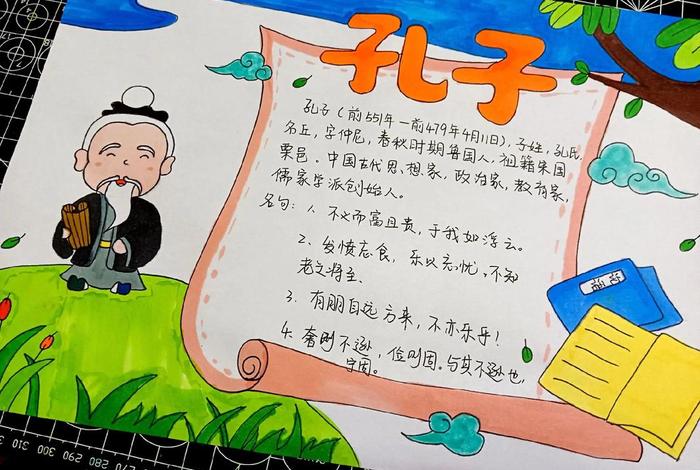 孔子
孔子(前551年一前479年4月11日),子姓,孔氏
名丘,字仲尼,春秋时期鲁国人,祖籍宋国
栗邑.中国古代思想家,政治家,教育家,
儒家学派创始人。
名句:1.不义而富且贵,于我如浮云。
2.发愤忘食,乐以忘忧,不知
老之将至
3.有朋自远方来,不亦乐乎!
4.奢则不逊,俭则固。与其不逊也,
宁固。
论语